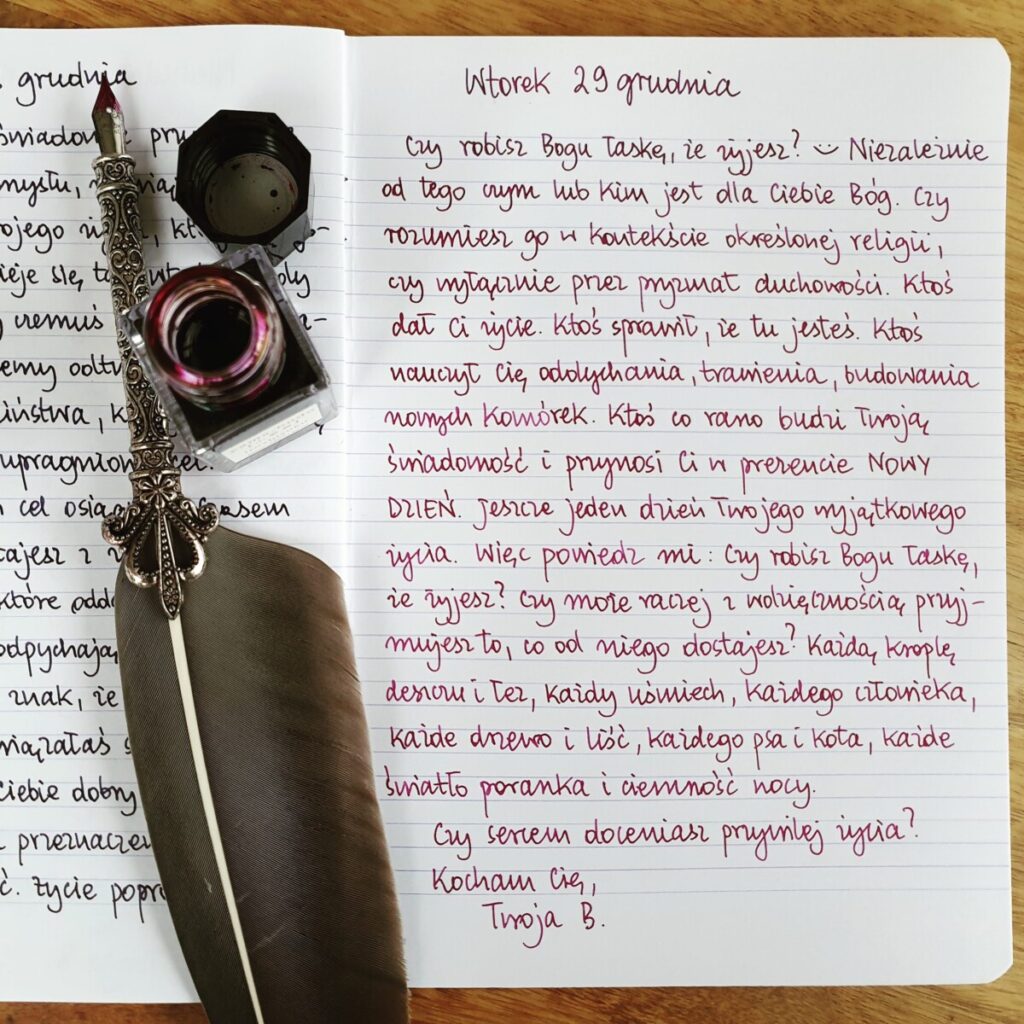 grudnia
świadom
mysłu,
ojego
ieje się,
czemuś
emy
ństwa,
upragnion cel.
cel osiąg Czasem
tajesz z
które odd
odpychają
znak, że
wiązałaś
Ciebie dobry
przeznaczen
ć. Życie popr
Wtorek 29 grudnia
Czy robisz Bogu łaskę, że żyjesz? Niezależnie
od tego czym lub kim jest dla Ciebie Bóg. Czy
rozumiesz go w kontekście określonej religii,
czy wyłącznie przez pryzmat duchowości. Ktoś
dał Ci życie. Ktoś sprawił, że tu jesteś. Ktoś
nauczył Cię oddychania, trawienia, budowania
nowych komórek. Ktoś co rano budzi Twoją
świadomość i przynosi Ci w prezencie NOWY
DZIEŃ. Jeszcze jeden dzień Twojego wyjątkowego
życia. Więc powiedz mi: Czy robisz Bogu łaskę,
że żyjesz? Czy może raczej z wdzięcznością przyj-
mujesz to, co od niego dostajesz? Każdą kroplę
deszczu i łez, każdy uśmiech, każdego człowieka,
każde drzewo i liść, każdego psa i kota, każde
światło poranka i ciemność nocy.
Czy sercem doceniasz przywilej życia?
Kocham Cię,
Twoja B.